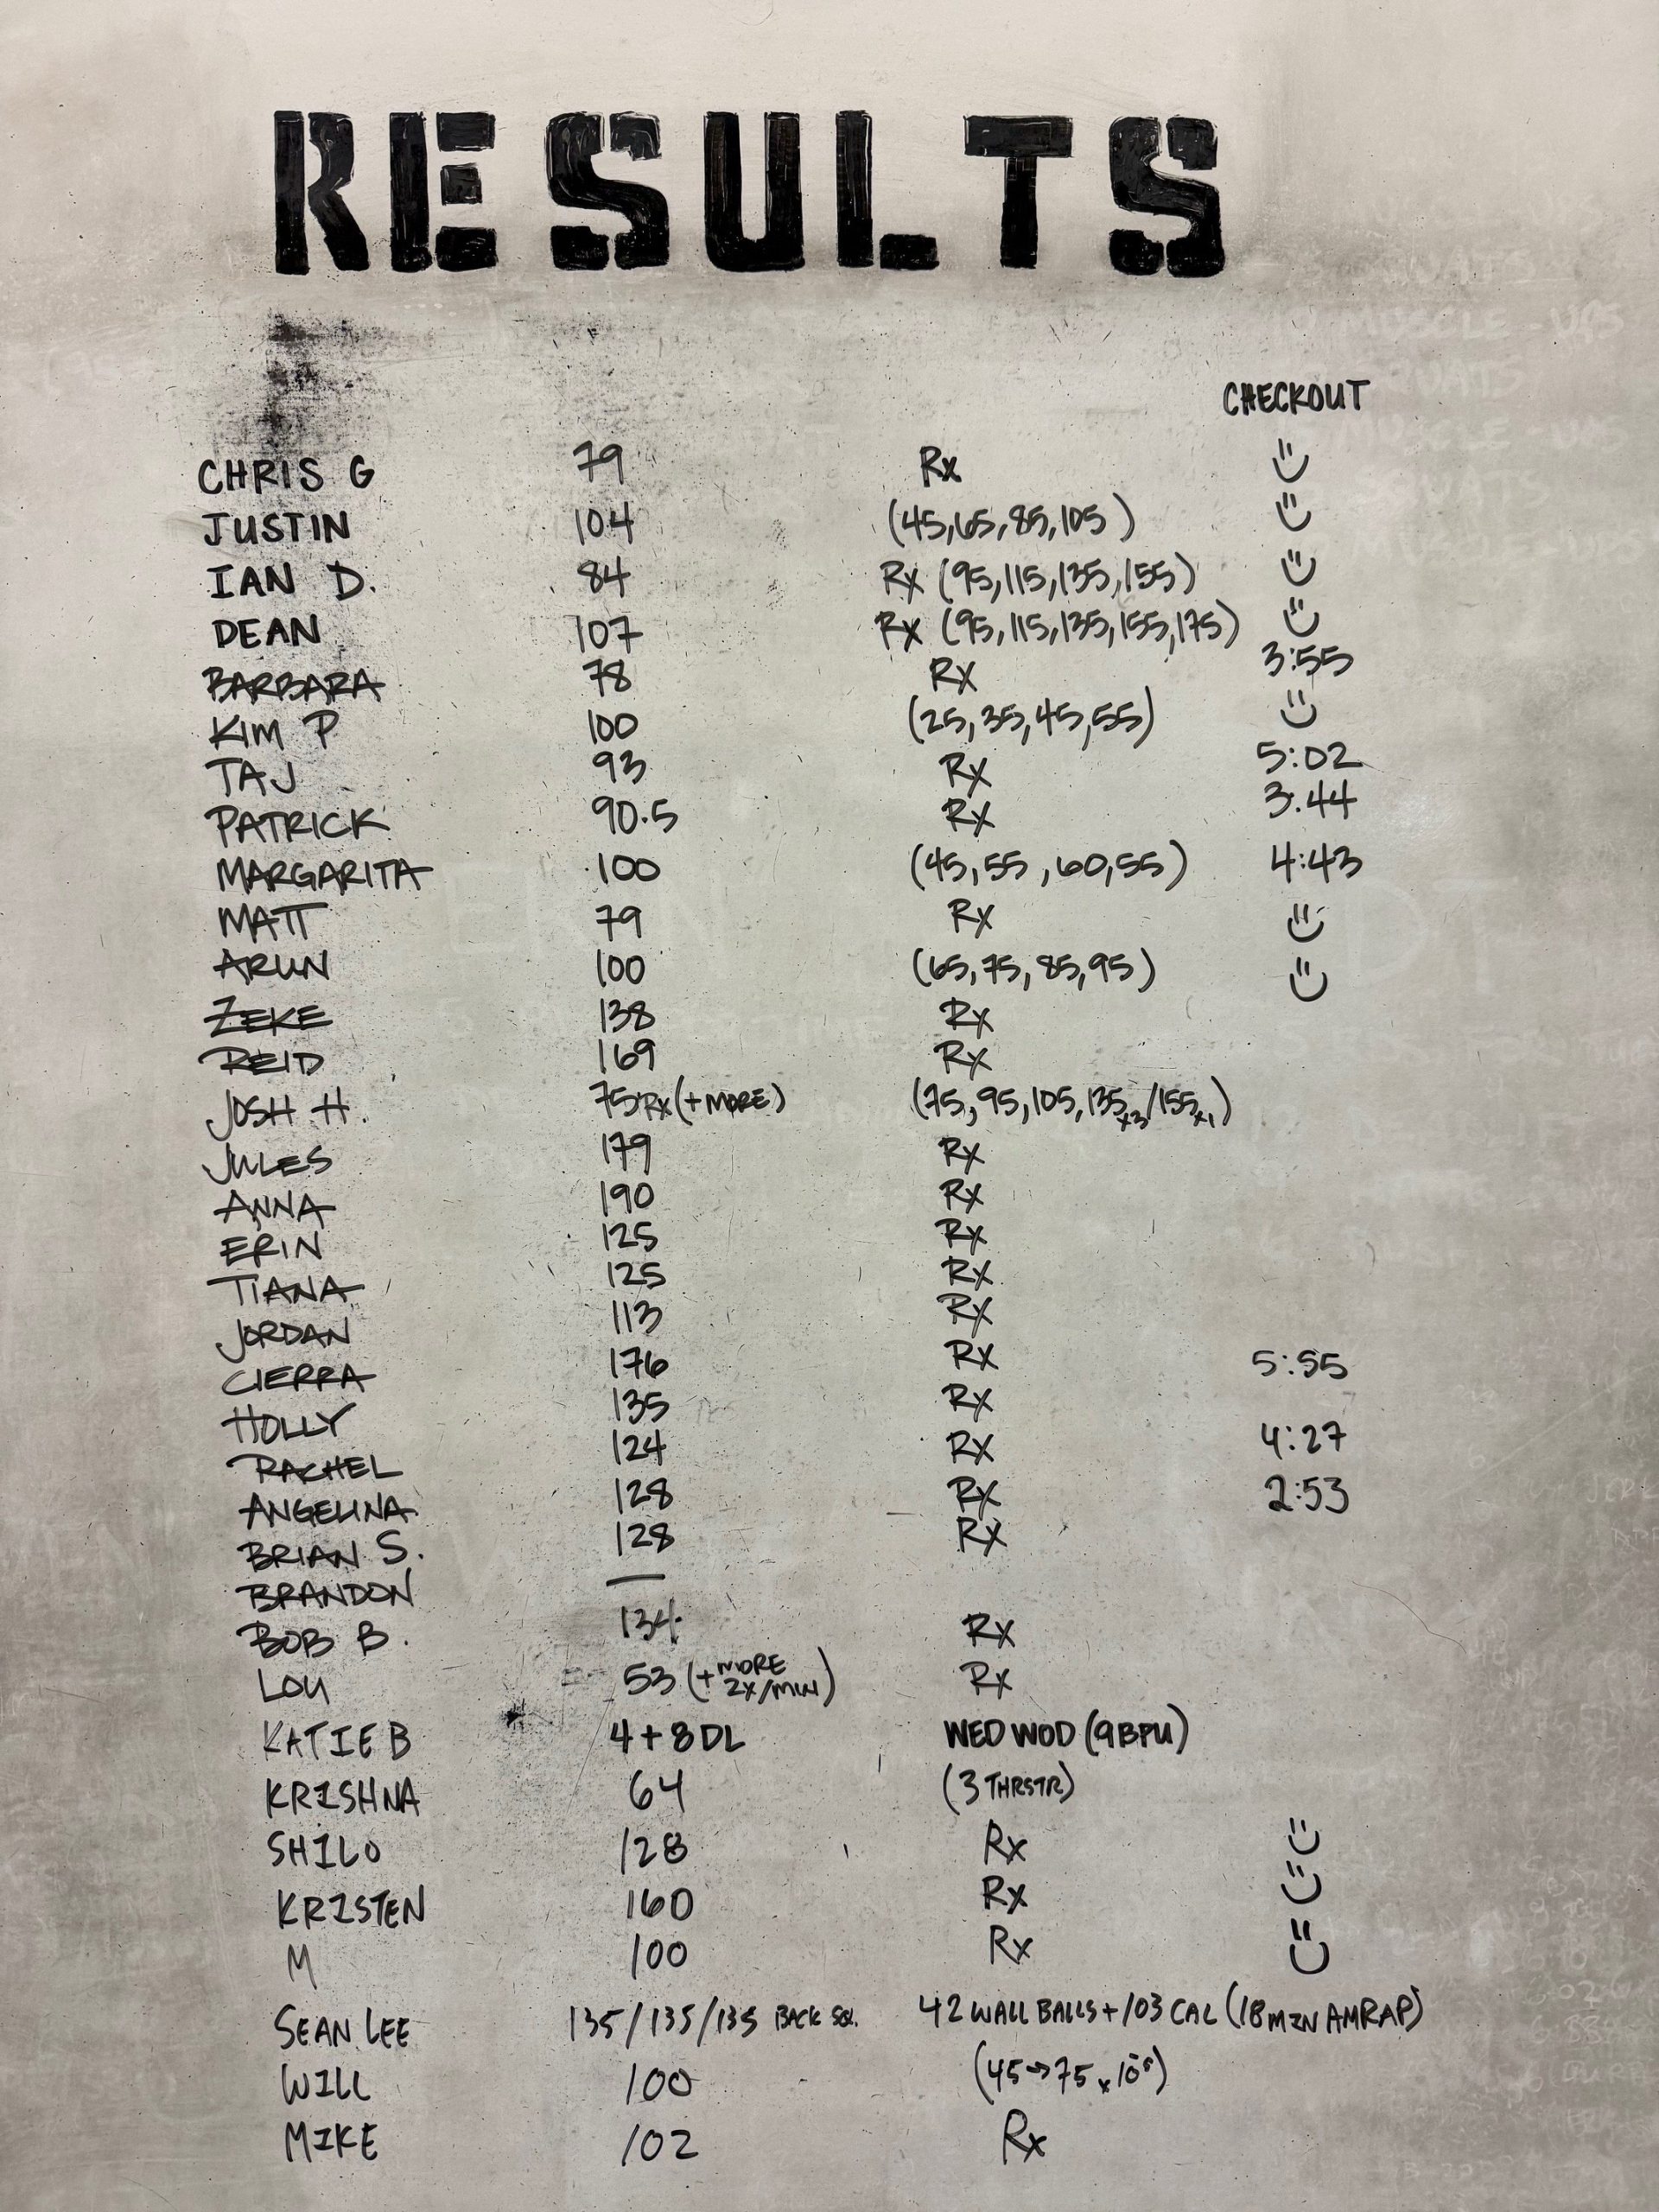 RESULTS
CHECKOUT
CHRIS G 79 Rx
JUSTIN 104 (45,65,85,105)
IAN D. 84 Rx (95,115,135,155)
DEAN 107 Rx (95,115,135,155,175)
BARBARA 78 Rx 3:55
KIM P 100 (25,35,45,55)
TAJ 93 Rx 5:02
PATRICK 90.5 Rx 3:44
MARGARITA 100 (45,55,60,55) 4:43
MATT 79 Rx
ARUN 100 (65,75,85,95)
ZEKE 138 Rx
REID 169 Rx
JOSH H. 75 Rx (+ MORE) (75,95,105,135x3/155x1)
JULES 179 Rx
ANNA 190 Rx
ERIN 125 Rx
TIANA 125 Rx
JORDAN 113 Rx
CIERRA 176 Rx 5:55
HOLLY 135 Rx
RACHEL 124 Rx 4:27
ANGELINA 128 Rx 2:53
BRIAN S. 128 Rx
BRANDON —
BOB B. 134 Rx
LOU 53 (+ MORE 2X/MIN) Rx
KATIE B 4 + 8 DL WED WOD (9 BPU)
KRISHNA 64 (3 THRSTR)
SHILO 128 Rx
KRISTEN 160 Rx
M 100 Rx
SEAN LEE 135/135/135 BACK SQ. 42 WALL BALLS + 103 CAL (18 MIN AMRAP)
WILL 100 (45→75
MIKE 102 Rx